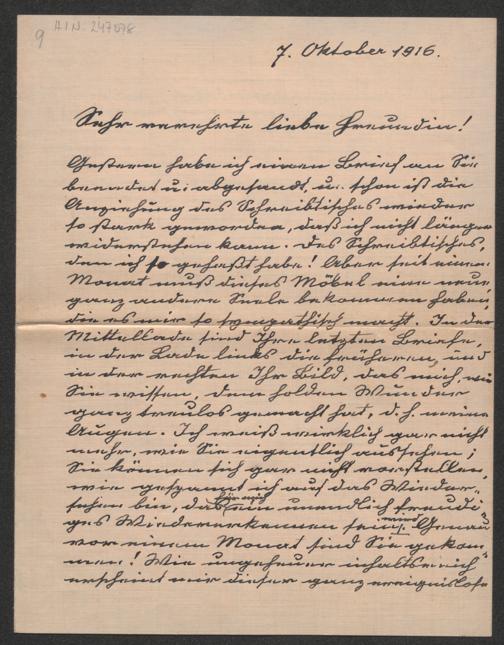 9 AIN-247078
7. Oktober 1916.
Sehr verehrte liebe Freundin!
Gestern habe ich einen Brief an Sie
beendet u. abgesandt, u. schon ist die
Anziehung des Schreibtisches wieder
so stark geworden, daß ich nicht länger
widerstehen kann. Des Schreibtisches,
den ich so gehaßt habe! Aber seit einem
Monat muß dieses Möbel eine neue
ganz andere Seele bekommen haben,
die es mir so sympathisch macht. In der
Mittellade sind Ihre letzten Briefe,
in der Lade links die früheren, und
in der rechten Ihr Bild, das mich, wie
Sie wissen, dem holden Wunder
ganz treulos gemacht hat, d. h. meine
Augen. Ich weiß wirklich gar nicht
mehr, wie Sie eigentlich aussehen;
Sie können sich gar nicht vorstellen,
wie gespannt ich auf das Wieder-
sehen bin, das für mich ein unendlich freudi-
ges Wiedererkennen sein wird. Genau
vor einem Monat sind Sie gekom-
men! Wie ungeheuer inhaltsreich
erscheint mir dieser ganz ereignislose